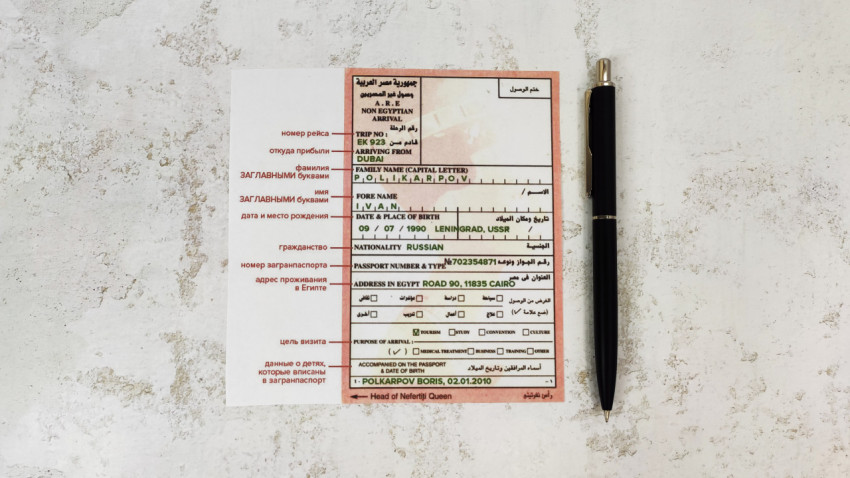 جمهورية مصر العربية
وصول غير المصريين
A . R . E
NON EGYPTIAN
ARRIVAL
ختم الوصول
رقم الرحلة
номер рейса
TRIP NO :
EK 923
قادم من
откуда прибыли
ARRIVING FROM
DUBAI
фамилия
ЗАГЛАВНЫМИ буквами
FAMILY NAME (CAPITAL LETTER)
POLIKARPOV
имя
ЗАГЛАВНЫМИ буквами
FORE NAME
/ الاسم
IVAN
дата и место рождения
DATE & PLACE OF BIRTH
تاريخ ومكان الميلاد
09 / 07 / 1990 LENINGRAD, USSR /
гражданство
NATIONALITY RUSSIAN
الجنسية
номер загранпаспорта
PASSPORT NUMBER & TYPE №702354871 رقم الجواز ونوعه
адрес проживания
в Египте
العنوان فى مصر
ADDRESS IN EGYPT ROAD 90, 11835 CAIRO
ثقافى مؤتمرات دراسة سياحة
الغرض من الوصول
(ضع علامة ✓)
أخرى تدريب أعمال علاج
TOURISM STUDY CONVENTION CULTURE
цель визита
PURPOSE OF ARRIVAL :
( ✓ ) MEDICAL TREATMENT BUSINESS TRAINING OTHER
данные о детях,
которые вписаны
в загранпаспорт
ACCOMPANIED ON THE PASSPORT
& DATE OF BIRTH
أسماء المرافقين وتاريخ الميلاد
١- POLKARPOV BORIS, 02.01.2010 -١
Head of Nefertiti Queen
رأس نفرتيتى